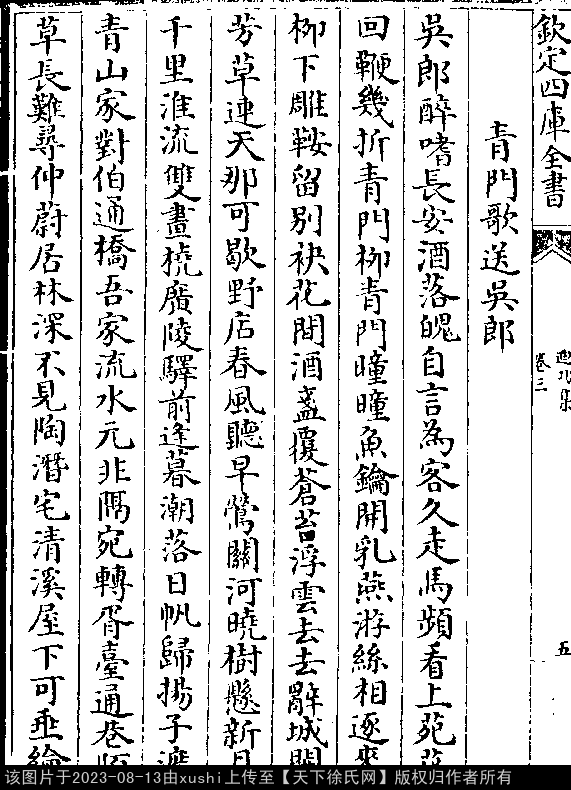 欽定四庫全書
卷三
五
青門歌送吳郎
吳郎醉嗜長安酒落魄自言為客久走馬頻看上苑
回鞭幾折青門柳青門曈曈魚鑰開乳燕游絲相逐
柳下雕鞍留别袂花間酒盞覆蒼苔浮雲去去辭城
芳草連天那可歇野店春風聽早鶯關河曉樹懸新月
千里淮流雙畫橈廣陵驛前逢暮潮落日帆歸揚子
青山家對伯通橋吾家流水元非隔宛轉胥臺通巷
草長難尋仲蔚居林深不見陶潛宅清溪屋下可垂綸
该图片于2023-08-13由xushi上传至【天下徐氏网】版权归作者所有